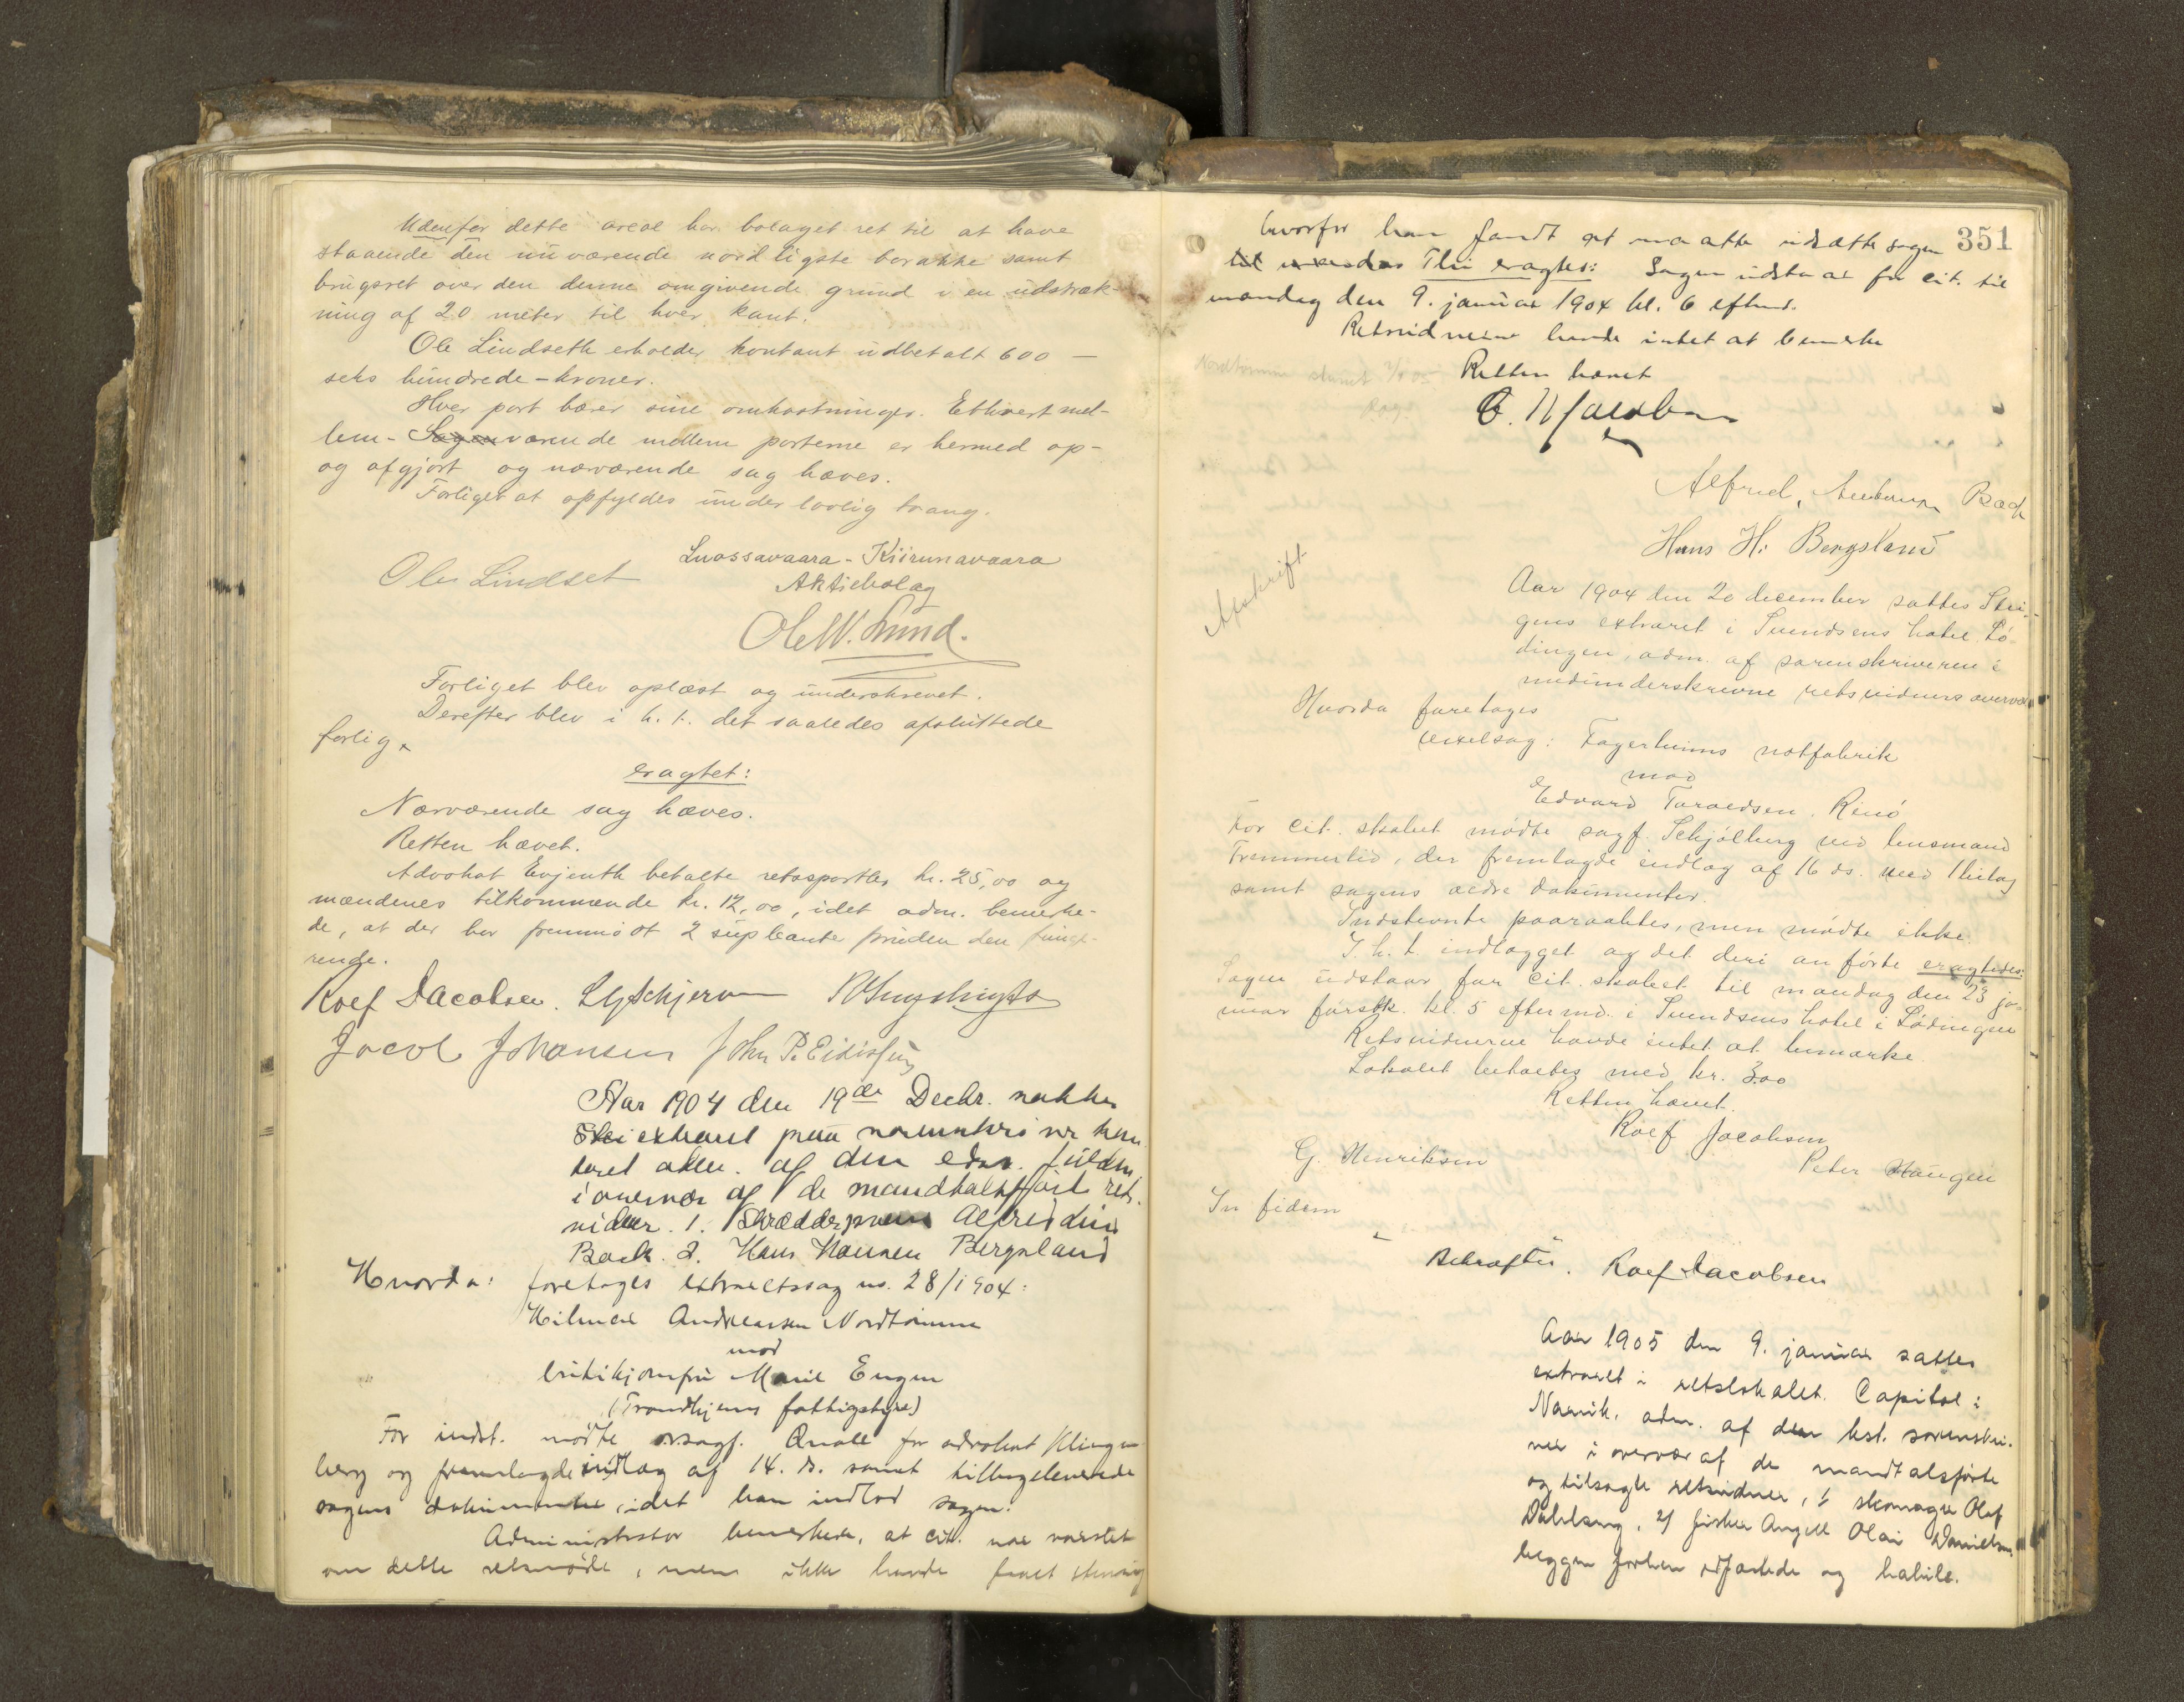 Udenfor dette areal har bolaget ret til at have
staaende den nuværende nordligste barakke samt
brugsret over den denne omgivende grund i en udstræk-
ning af 20 meter til hver kant.
Ole Lindseth erholder kontant udbetalt 600 —
seks hundrede - kroner.
Hver part bærer sine omkostninger. Ethvert mel-
lem- værende mellem parterne er hermed op-
og afgjort og nærværende sag hæves.
Forliget at opfyldes under lovlig tvang.
Luossavaara - Kiirunavaara
Ole Lindset Aktiebolag
Ole W. Lund.
Forliget blev oplæst og underskrevet.
Derefter blev i h. t. det saaledes afsluttede
forlig
eragtet:
Nærværende sag hæves.
Retten hævet.
Advokat Evjenth betalte retssportler kr. 25,00 og
mændenes tilkommende kr. 12,00, idet adm. bemerke-
de, at der har fremmødt 2 supleanter foruden den funge-
rende.
Roef Jacobsen.
Jacob Johansen John P. Eidissen
Aar 1904 den 19de Decbr. sattes
extraret paa sorenskriver kon-
toret adm. af den edsv. fuldm.
i overvær af de mandtalsførte rets-
vidner. 1. Skrædder Alfred
Back. 2. Hans Hansen Bergsland
Hvorda: foretages extraretssag no. 28/1904:
Hilmar Andreassen Nordtømme
mod
butikjomfru Marie Engen
(Trondhjems fattigstyre)
For indst. mødte orsagf. Qvale for advokat Klingen-
berg og fremlagde indlæg af 14. ds. samt tilbageleverede
sagens dokumenter, idet han indlod sagen.
Administrator bemerkede, at cit. var varslet
om dette retsmøde, men ikke havde faaet
351
hvorfor han fandt at maatte udsætte sagen
Thi eragtes: Sagen udstaar for cit. til
mandag den 9. januar 1904 kl. 6 efterm.
Retsvidnerne havde intet at bemerke
Retten hævet
Alfred, Back
Hans H. Bergsland
Afskrift
Aar 1904 den 20 december sattes Stei-
gens extraret i Svendsens hotel Lø-
dingen, adm. af sorenskriveren i
medunderskrevne retsvidners overvær
Hvorda foretages
vexelsag: Fagerheims notfabrik
mod
Edvard Taraldsen, Rinø
For cit. skabet mødte sagf. Schjølberg ved lensmand
Tremmerlid, der fremlagde indlæg af 16 ds. med 1 bilag
samt sagens ældre dokumenter.
Indstevnte paaraabtes, men mødte ikke.
I h. t. indlægget og det deri anførte eragtedes:
Sagen udstaar for cit. skabet til mandag den 23 ja-
nuar førstk. kl. 5 efterm. i Svendsens hotel i Lødingen
Retsvidnerne havde intet at bemærke.
Lokalet betaltes med kr. 3.00
Retten hævet.
Roef Jacobsen
G. Henriksen Peter Haugen
In fidem
Bekræfter. Roef Jacobsen
Aar 1905 den 9. januar sattes
extraret i retslokalet Capitol i
Narvik, adm. af den kst. sorenskri-
ver i overvær af de mandtalsførte
og tilsagte retsvidner, 1/ skomager Olaf
Dahlberg, 2/ fisker Angell Olai Danielsen
begge forhen edfæstede og habile.